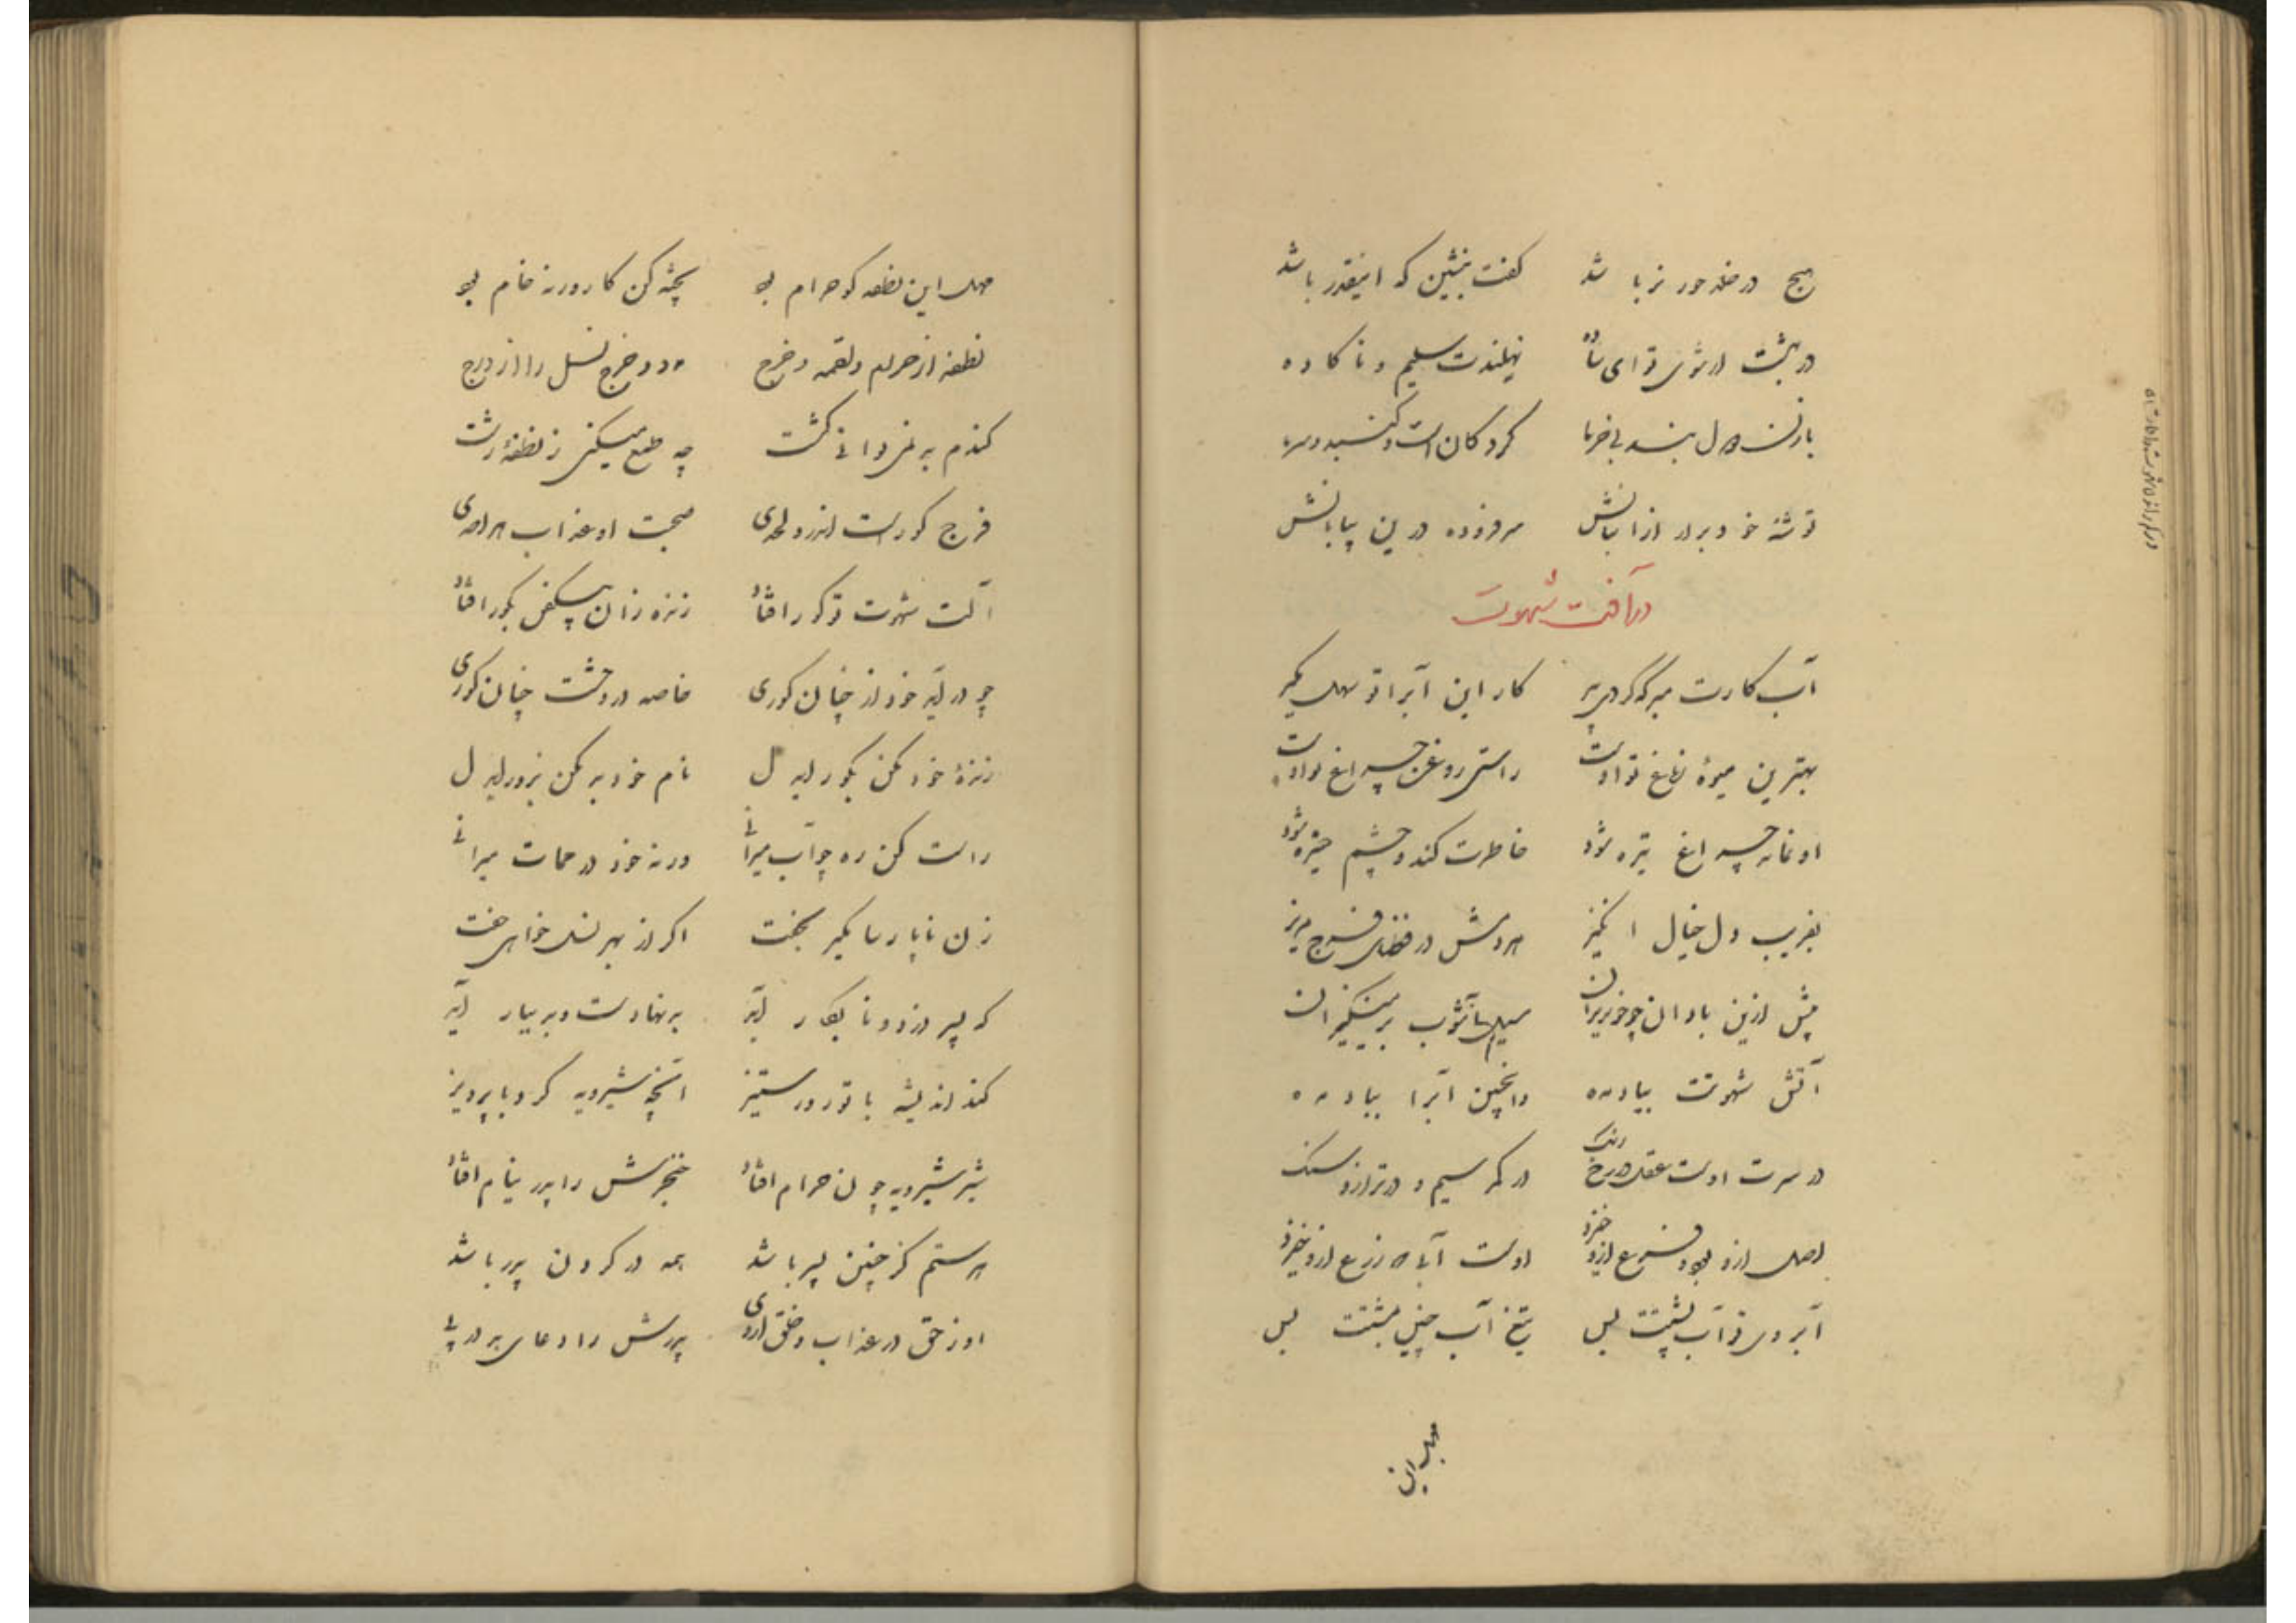 هیچ در خلد حور نر باشد کفت بنشین که اینقدر باشد
در بهشت ار شوی تو ای ساده نهلندت سلیم و ناکاده
کردکان است و کنبد و
توشه خود ببر از در این بیابانش
در آفت شهوت
آب کارت مبر که کردی پیر کار این آبرا تو سهل مکیر
بهترین میوه ز باغ تو اوست راستی روغن چراغ تو اوست
او نماند چراغ تیره شود خاطرت کند و چشم خیره شود
بفریب دل خیال انکیز هر دمش در فضای فرج مریز
پیش ازین بادان چو خونریزان سیل آشوب بر مینکیزان
آتش شهوتت بباد مده وانچنین آبرا بباد مده
در سرت اوست عقل و در رخ رنک در کمر سیم و در ترازو سنک
اصل ازو بود و فرع ازو خیزد اوست آبی که زرع ازو خیزد
آبروی تو آب پشتت بس تیغ آب چنین بمشتت بس
مهل این
مهل این نطفه کو حرام بود پخته کن کار ورنه خام بود
نطفه از حرام و لقمه و خرج دود و خرج نسل را از درج
کندم بد نمیتوانی کشت چه طمع میکنی ز نطفهٔ زشت
فرج کورست اندرو لحدی صحبت او عذاب هر احدی
آلت شهوت تو کور افتاد زنده زان پس بکور افتاد
چو در آید خود از چنان کوری خاصه در وحشت چنان کوری
زندهٔ خود مکن بکور ای دل نام خود بد مکن بزور ای دل
راست کن ره چو آب میرانی ورنه خود در ممات میرانی
زن ناپارسا مکیر بجفت اکر از بهر نسل خواهی خفت
که پسر دزد و نابکار آید بد نهادست و بد بیار آید
کند اندیشه با تو در ستیز آنچه شیرویه کرد با پرویز
شیر شیرویه چون حرام افتاد خنجرش را پدر نیام افتاد
هر ستم کز چنین پسر باشد همه در کردن پدر باشد
او ز حق در عذاب و خلق از وی پدرش را دعای بد در پی